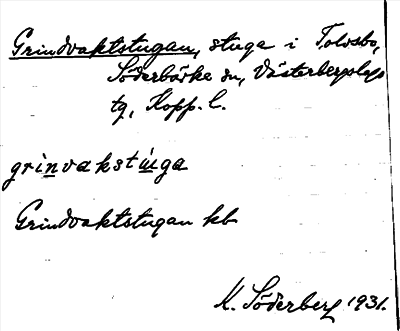 Grindvaktstugan, stuga i Tolvsbo,
Söderbärke sn, Västerbergslags
tg, Kopp. l.
grinvakstùga
Grindvaktstugan kb
K. Söderberg 1931.